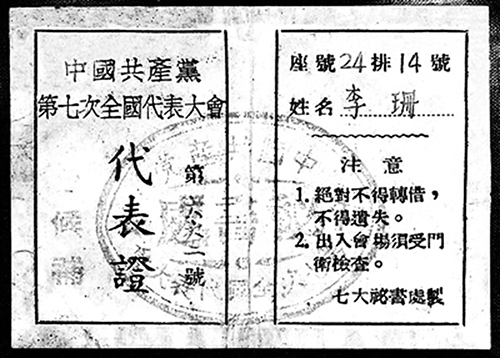 中國共產黨
第七次全國代表大會
代表證
第六六一號
候補
座號24排14號
姓名 李珊
注意
1. 絕對不得轉借，
不得遺失。
2. 出入會場須受門
衛檢查。
七大祕書處製